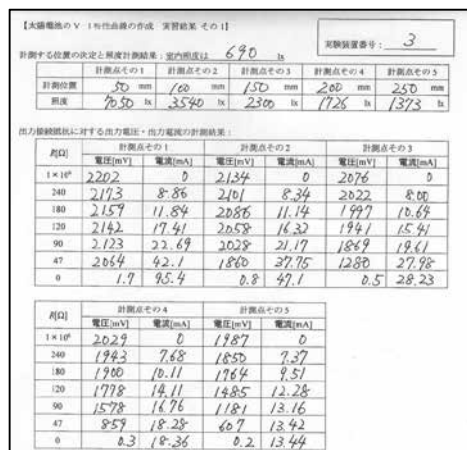 【太陽電池のV-I特性曲線の作成 実習結果 その1】
実験装置番号： 3
計測する位置の決定と照度計測結果：室内照度は 690 lx
計測点その1 計測点その2 計測点その3 計測点その4 計測点その5
計測位置 50 mm 100 mm 150 mm 200 mm 250 mm
照度 7050 lx 3540 lx 2300 lx 1726 lx 1373 lx
出力接続抵抗に対する出力電圧・出力電流の計測結果：
R[Ω] 計測点その1 計測点その2 計測点その3
電圧[mV] 電流[mA] 電圧[mV] 電流[mA] 電圧[mV] 電流[mA]
1×10⁶ 2202 0 2134 0 2076 0
240 2173 8.86 2101 8.34 2022 8.00
180 2159 11.84 2086 11.14 1997 10.64
120 2142 17.41 2058 16.32 1941 15.41
90 2123 22.69 2028 21.17 1869 19.61
47 2064 42.1 1860 37.75 1280 27.98
0 1.7 95.4 0.8 47.1 0.5 28.23
R[Ω] 計測点その4 計測点その5
電圧[mV] 電流[mA] 電圧[mV] 電流[mA]
1×10⁶ 2029 0 1987 0
240 1943 7.68 1850 7.37
180 1900 10.11 1764 9.51
120 1778 14.11 1485 12.28
90 1578 16.76 1181 13.16
47 859 18.28 607 13.42
0 0.3 18.36 0.2 13.44